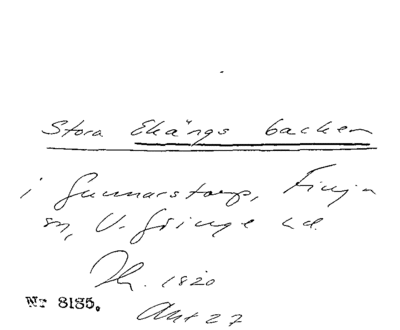 Stora Ekängs backen
i Gunnarstorp, Finja
sn, V. Göinge hd.
Th. 1820
Akt 27
Nr 8185.